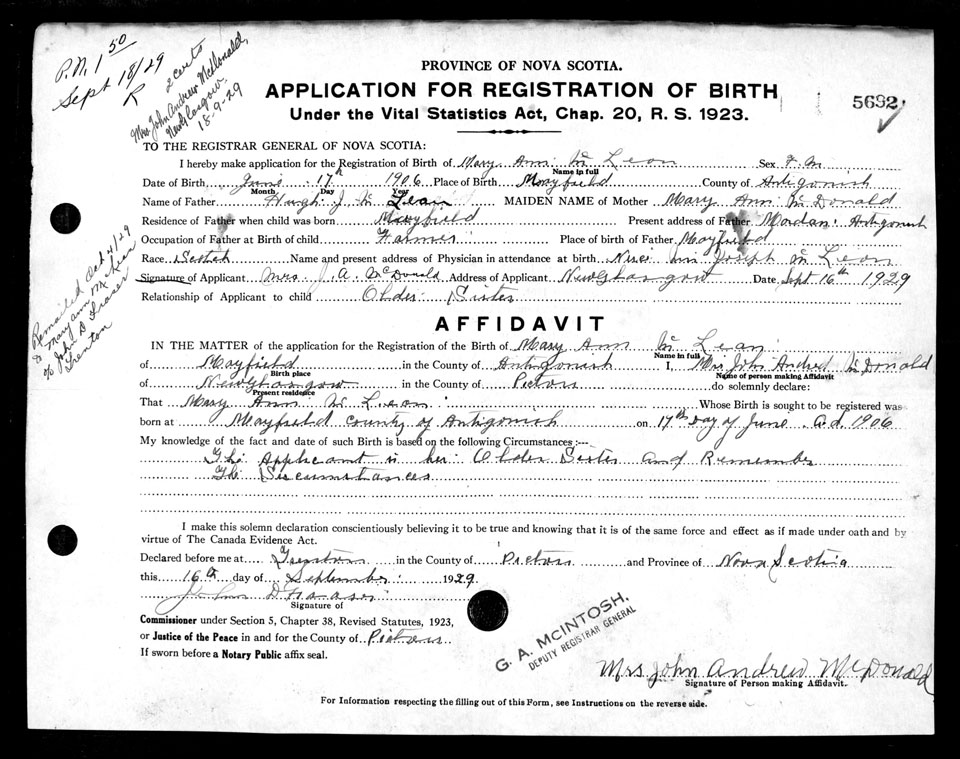 P.N. 1 50
Sept 18/29
R
2 certs
Mrs. John Andrew McDonald,
New Glasgow.
18-9-29
PROVINCE OF NOVA SCOTIA.
APPLICATION FOR REGISTRATION OF BIRTH
5692
Under the Vital Statistics Act, Chap. 20, R. S. 1923.
TO THE REGISTRAR GENERAL OF NOVA SCOTIA:
I hereby make application for the Registration of Birth of Mary Ann Mc Lean Sex F.
Name in full
Date of Birth June 17th 1906 Place of Birth Mayfield County of Antigonish
Month Day Year
Name of Father Hugh J. Mc Lean MAIDEN NAME of Mother Mary Ann McDonald
Residence of Father when child was born Mayfield Present address of Father Antigonish
Occupation of Father at Birth of child Farmer Place of birth of Father Mayfield
Race Scotch Name and present address of Physician in attendance at birth Joseph Mc Lean
Signature of Applicant Mrs. J. A. McDonald Address of Applicant New Ghasgow Date Sept 16th 1929
Relationship of Applicant to child Older Sister
Remailed Oct 24/29
to Mary Ann McLean
c/o John D Fraser
Trenton
AFFIDAVIT
IN THE MATTER of the application for the Registration of the Birth of Mary Ann Mc Lean
Name in full
of Mayfield in the County of Antigonish I, Mrs John Andrew McDonald
Birth place Name of person making Affidavit
of New Ghasgow in the County of Pictou do solemnly declare:
Present residence
That Mary Ann Mc Lean Whose Birth is sought to be registered was
born at Mayfield County of Antigonish on 17th Day of June a.d. 1906
My knowledge of the fact and date of such Birth is based on the following Circumstances :—
The Applicant is her Older Sister and Remember
The Sircumstances
I make this solemn declaration conscientiously believing it to be true and knowing that it is of the same force and effect as if made under oath and by
virtue of The Canada Evidence Act.
Declared before me at Trenton in the County of Pictou and Province of Nova Scotia
this 16th day of September 1929.
John D Fraser
Signature of
Commissioner under Section 5, Chapter 38, Revised Statutes, 1923,
or Justice of the Peace in and for the County of Pictou
If sworn before a Notary Public affix seal.
G. A. McINTOSH,
DEPUTY REGISTRAR GENERAL
Mrs John Andrew McDonald
Signature of Person making Affidavit.
For Information respecting the filling out of this Form, see Instructions on the reverse side.